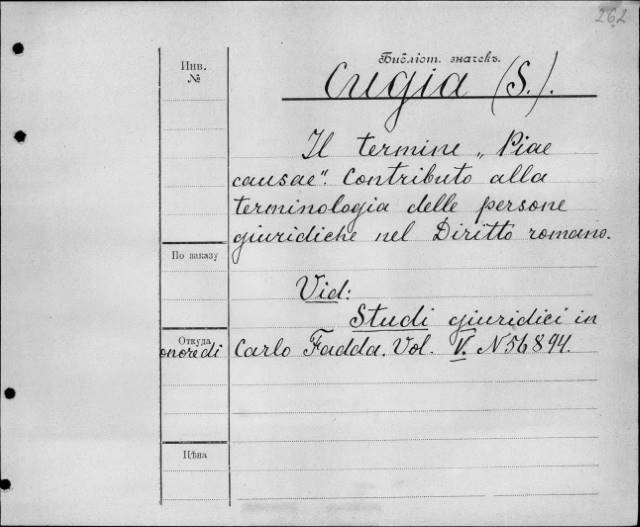 262
Инв.
№
Библіот. значекъ.
Cugia (S.).
Il termine „Piae
causae". Contributo alla
terminologia delle persone
giuridiche nel Diritto romano.
По заказу
Vid:
Studi giuridici in
Откуда
onore di Carlo Fadda. Vol. V. N 56894.
Цѣна